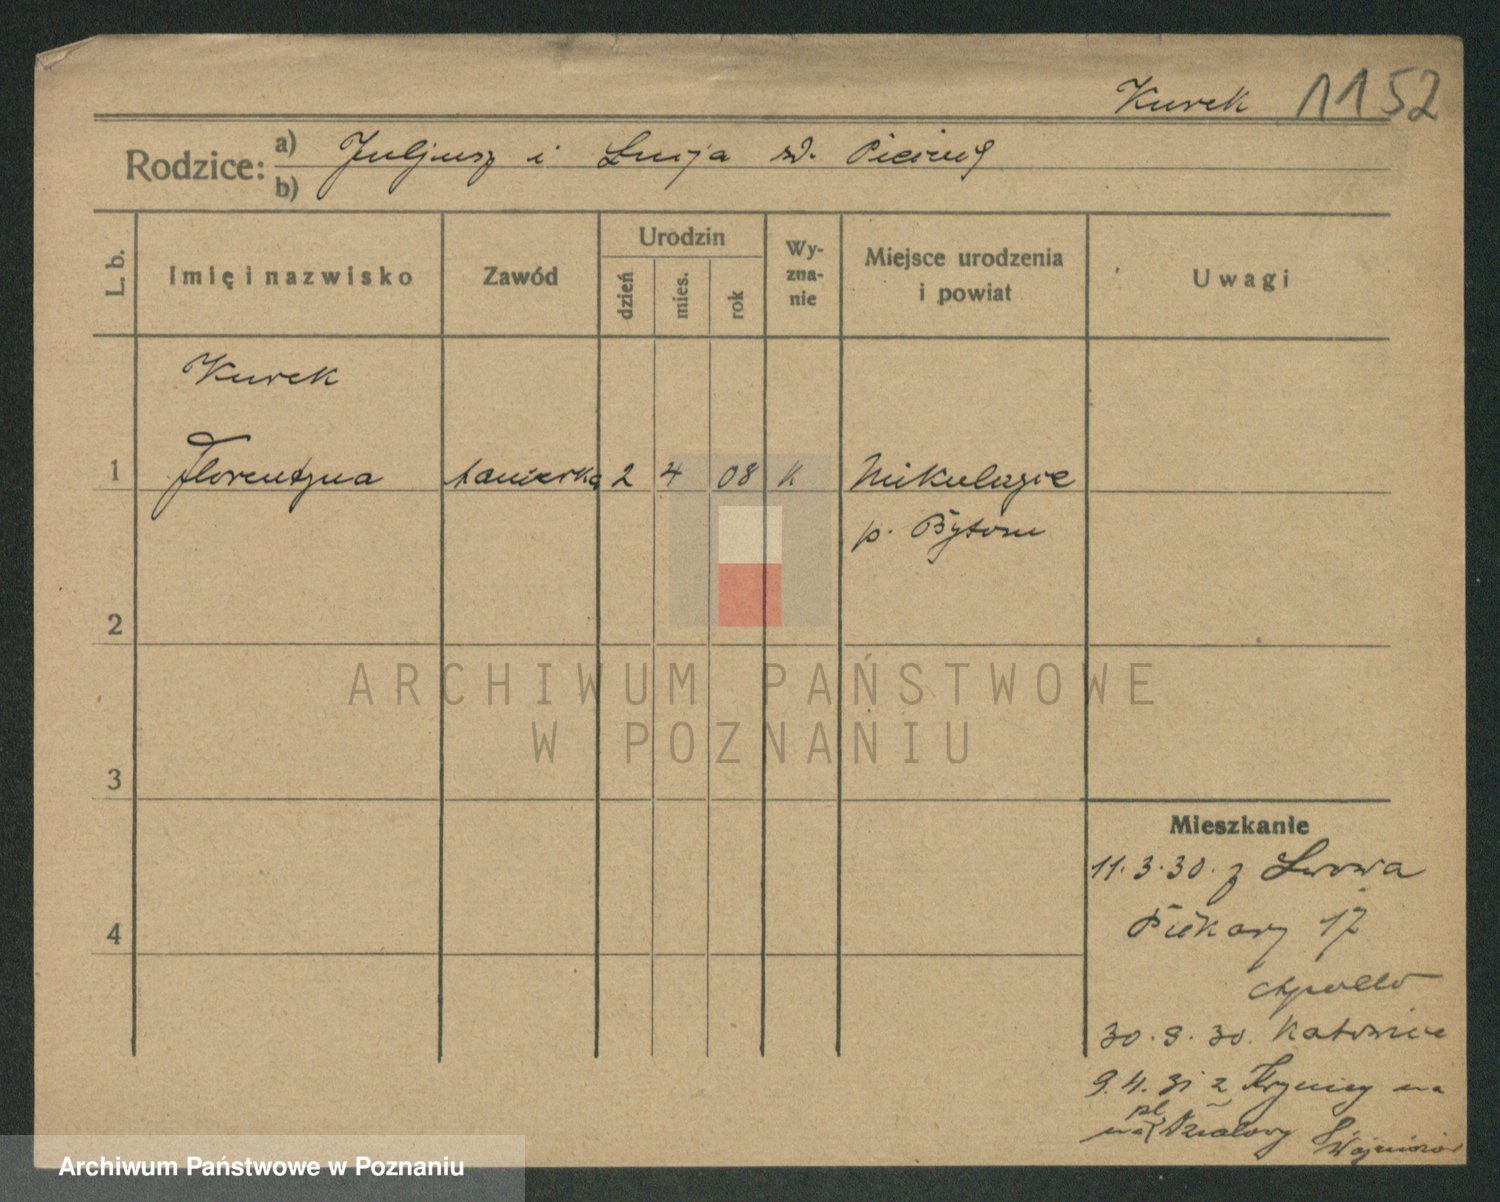 Kurek 1152
Rodzice:
a) Juljusz i Łucja zd.
b)
L. b.
Imię i nazwisko
Zawód
Urodzin
dzień
mies.
rok
Wy-
zna-
nie
Miejsce urodzenia
i powiat
Uwagi
Kurek
1 Florentyna tancerka 2 4 08 k Mikulczyce
p. Bytom
2
3
4
Mieszkanie
11.3.30. z Lwowa
Piekary 17
Apollo
30.9.30. Katowice
9.4.31 z Krynicy na
pl.
Działowy
ARCHIWUM PAŃSTWOWE
W POZNANIU
Archiwum Państwowe w Poznaniu